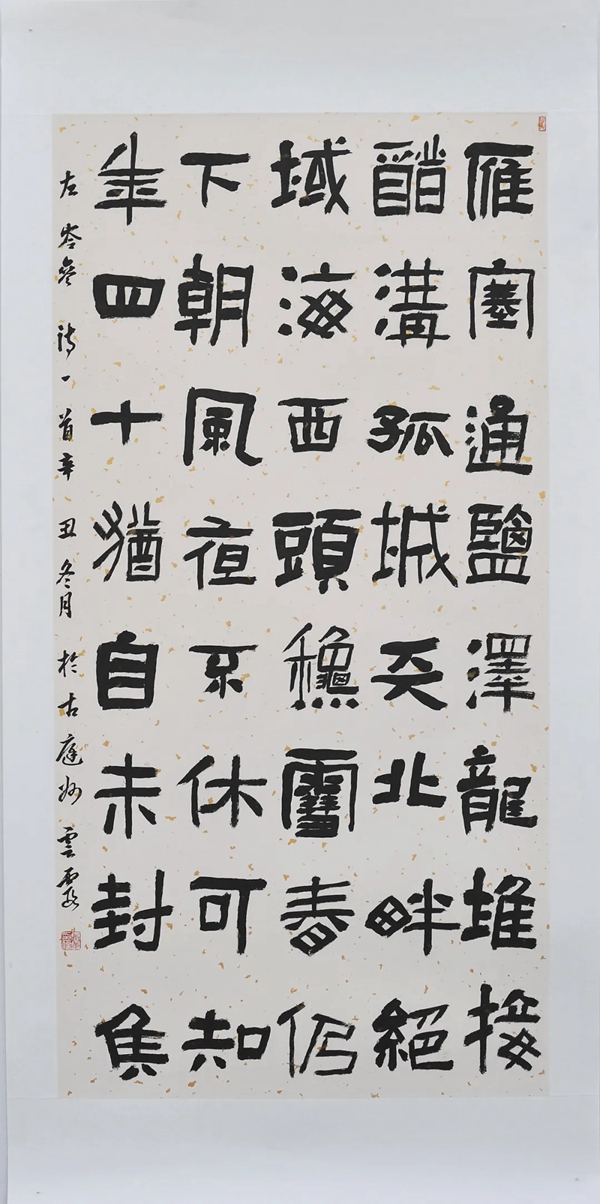 雁塞通鹽澤龍堆接
醋溝孤城天北畔絕
域海西頭龝雪春仍
下朝風夜不休可知
年四十猶自未封矦
右岑參詩一首辛丑冬月於古庭州雲霞